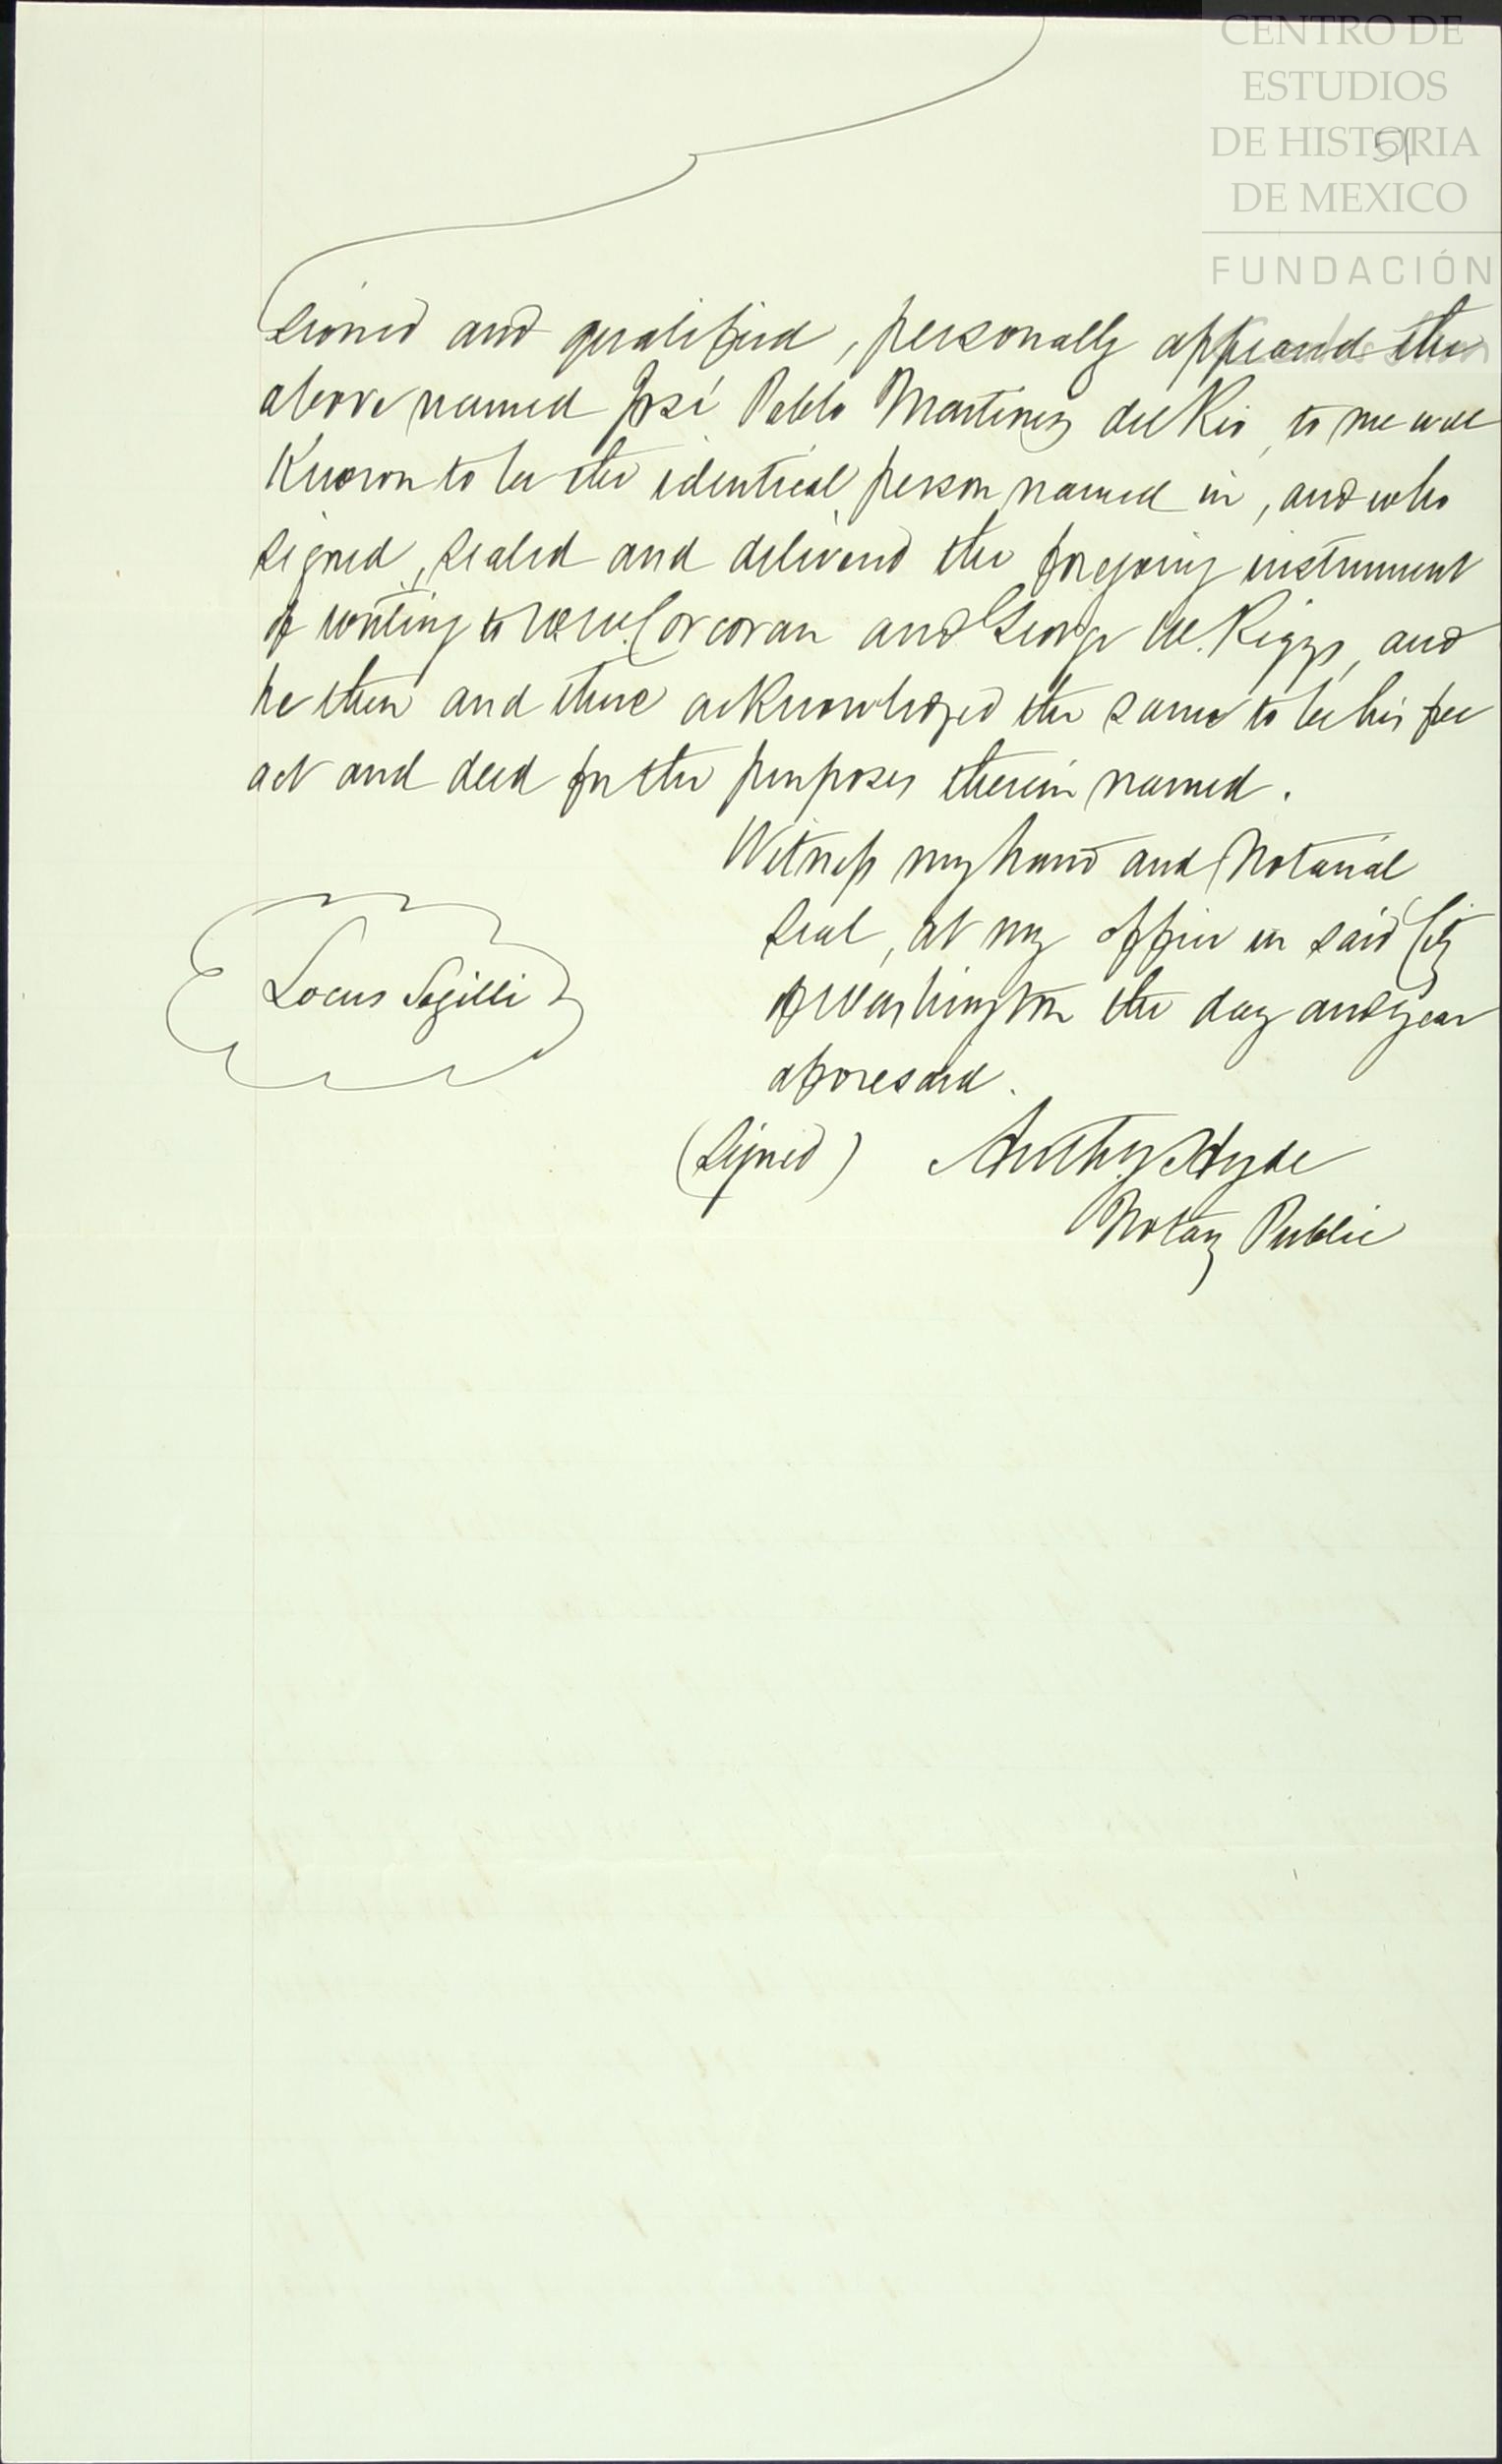 CENTRO DE
ESTUDIOS
DE HISTORIA
51
DE MEXICO
FUNDACIÓN
sioned and qualified, personally appeared the
above named José Pablo Martinez del Rio, to me well
Known to be the identical person named in, and who
signed, sealed and delivered the foregoing instrument
of writing to W. W. Corcoran and George W. Riggs, and
he then and there acknowledged the same to be his free
act and deed for the purposes therein named.
Witness my hand and Notarial
Seal, at my office in said City
of Washington the day and year
aforesaid.
Locus Sigilli
(Signed) Anthy Hyde
Notary Public